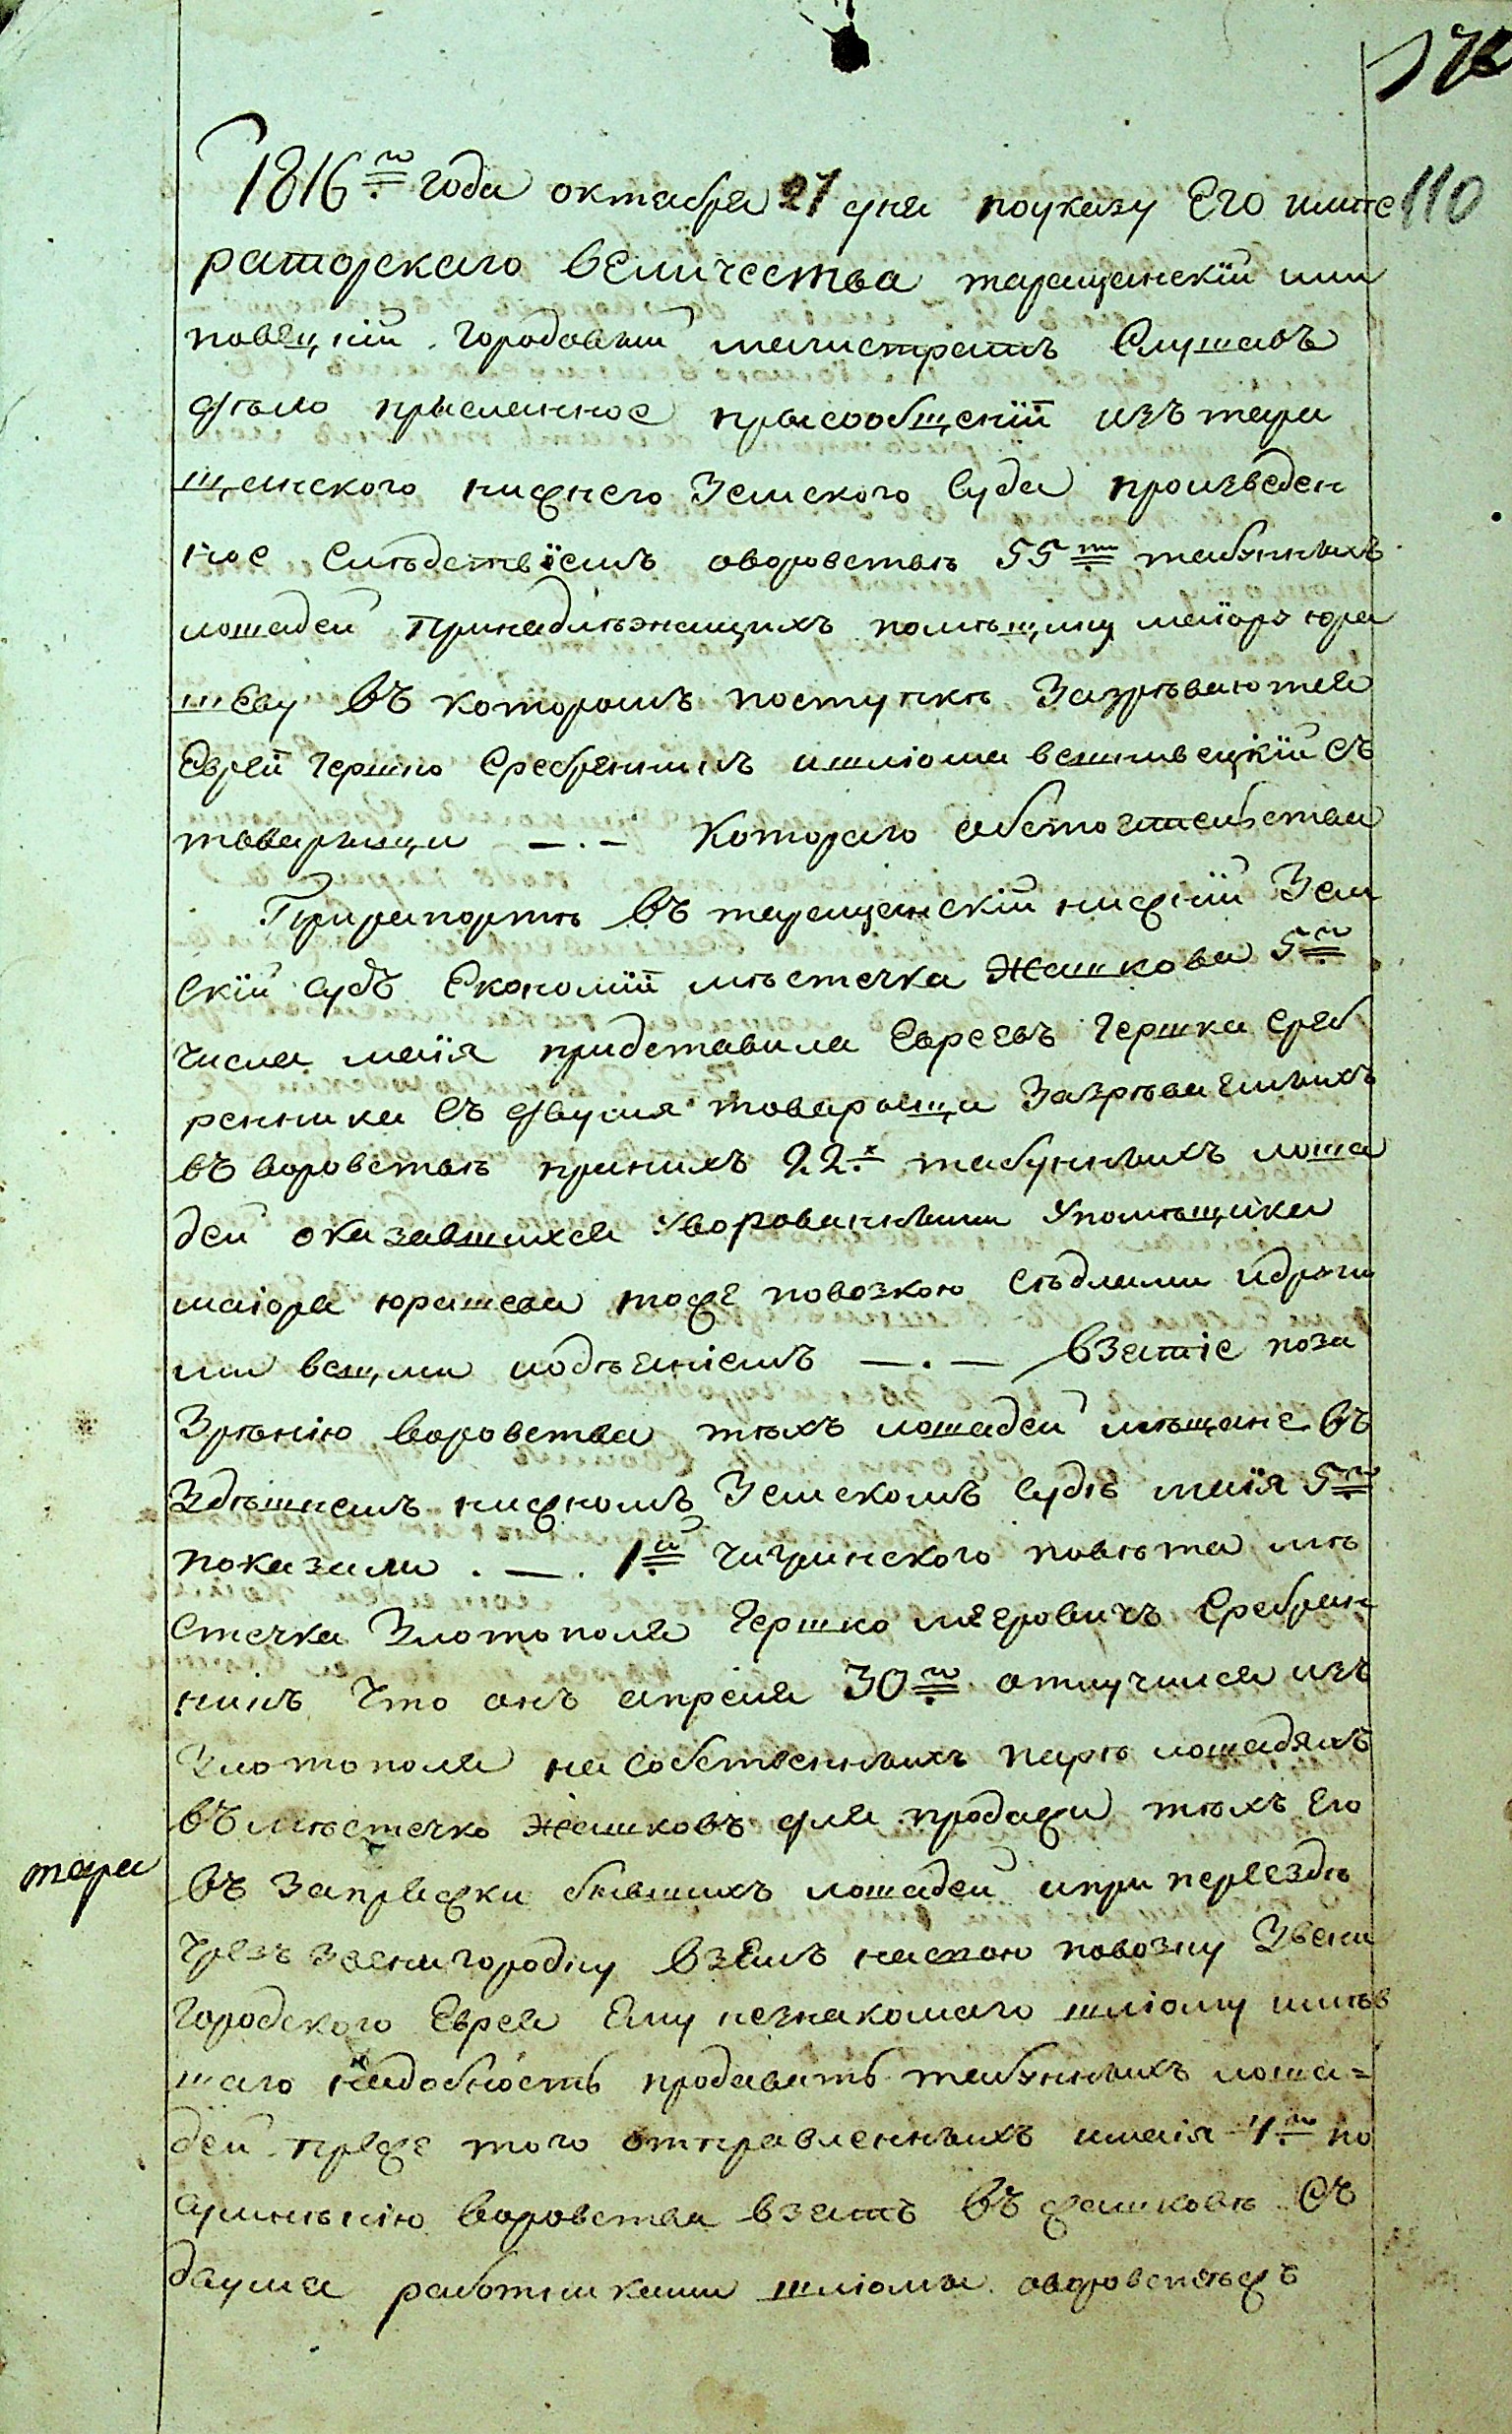 172
110
1816го года октября 27 дня поуказу Его импе
раторскаго величества таращанскїй или
повецкїй городовый магистратъ Слушавъ
дѣло присланное присообщенїй изъ тара
щанского нижнего Земского Суда произведен
ное Слѣдствїемъ оворовствѣ 55ти табунныхъ
лошадей принадлѣжащихъ помѣщику маїору юра
шеву въ которомъ поступкѣ Зазрѣваются
Еврей Гершко Сребренникъ ишліома вешнивецкїй съ
товарищи —.— Которого обстоятельства
Прирапортѣ въ таращанскїй нижнїй Зем
скїй Судъ Економїя мѣстечка Жашкова 5го
числа маїя придставила Евреевъ Гершка Среб
ренника Съ двумя товарищи Зазрѣваемыхъ
въ воровствѣ принихъ 22х табунныхъ лоша
дей оказавшихся уворованными Упомѣщика
маіора юрашева тоже повозкою Сѣдлами идруги
ми вещми иодѣянїемъ —.— Взятіе поза
Зрѣнію воровства тѣхъ лошадей мѣщане въ
Здѣшнемъ нижномъ Земскомъ Судѣ маїя 5го
показали .—. 1й Чигринского повѣта мѣ
стечка Златополя Гершко меeровичъ Сребрен
никъ Что онъ апреля 30го отлучился изъ
Златополя насобственныхъ парѣ лошадяхъ
въ мѣстечко Жашковъ для продажи тѣхъ Его
въ запряжки бывшихъ лошадей ипри переездѣ
чрезъ Звенигородку взялъ насвою повозку Звени
городского Еврея Ему незнакомаго шліому имѣв
шаго надобность продавать табунныхъ лоша=
дей преже того отправленныхъ имаія 4го по
сумнѣнію воровства взятъ въ жашковѣ Съ
двума работниками шліомы. оворовствѣжъ
тара